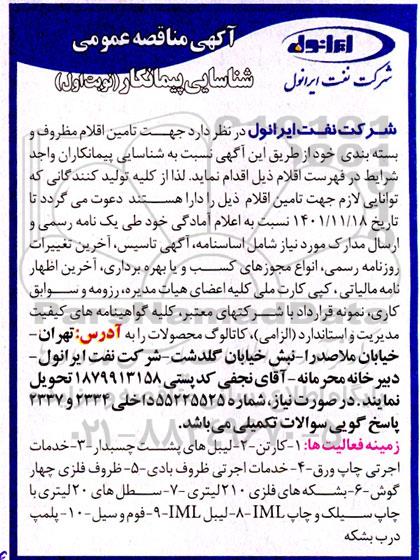 آگهی مناقصه عمومی
شناسایی پیمانکار (نوبت اول)
ایرانول
شرکت نفت ایرانول
شرکت نفت ایرانول در نظر دارد جهت تامین اقلام مظروف و
بسته بندی خود از طریق این آگهی نسبت به شناسایی پیمانکاران واجد
شرایط در فهرست اقلام ذیل اقدام نماید. لذا از کلیه تولید کنندگانی که
توانایی لازم جهت تامین اقلام ذیل را دارا هستند دعوت می گردد تا
تاریخ ۱۴۰۱/۱۱/۱۸ نسبت به اعلام آمادگی خود طی یک نامه رسمی و
ارسال مدارک مورد نیاز شامل اساسنامه، آگهی تاسیس، آخرین تغییرات
روزنامه رسمی، انواع مجوزهای کسب و یا بهره برداری، آخرین اظهار
نامه مالیاتی، کپی کارت ملی کلیه اعضای هیات مدیره، رزومه و سوابق
کاری، نمونه قرارداد با شرکتهای معتبر، کلیه گواهینامه های کیفیت
مدیریت و استاندارد (الزامی)، کاتالوگ محصولات را به آدرس: تهران-
خیابان ملاصدرا-نبش خیابان گلدشت-شرکت نفت ایرانول-
دبیرخانه محرمانه-آقای نجفی کدپستی ۱۸۷۹۹۱۳۱۵۸ تحویل
نمایند. در صورت نیاز، شماره ۵۵۲۲۵۵۲۵ داخلی ۲۳۳۴ و ۲۳۳۷
پاسخ گویی سوالات تکمیلی می‌باشد.
زمینه فعالیت ها: ۱-کارتن-۲-لیبل های پشت چسبدار-۳-خدمات
اجرتی چاپ ورق-۴-خدمات اجرتی ظروف بادی-۵-ظروف فلزی چهار
گوش-۶-بشکه های فلزی ۲۱۰ لیتری-۷-سطل های ۲۰ لیتری با
چاپ سیلک و چاپ IML-۸-لیبل IML-۹-فوم و سیل-۱۰-پلمپ
درب بشکه